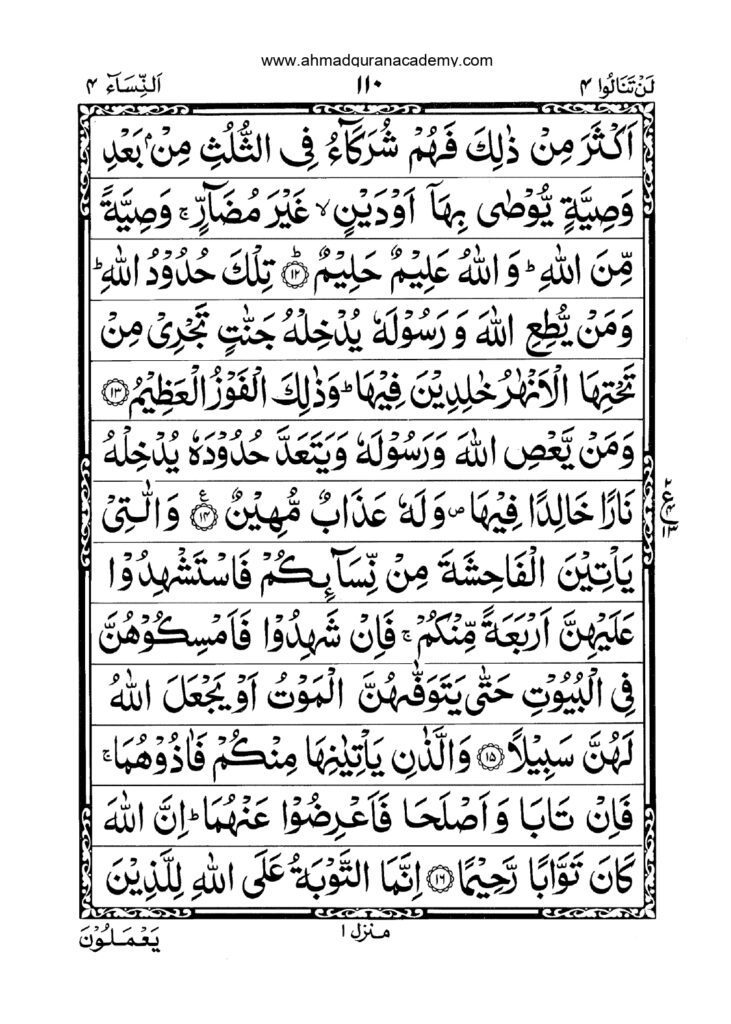 www.ahmadquranacademy.com
لَنْ تَنَالُوا ۴
۱۱۰
اَلنِّسَآء ۴
اَكْثَرَ مِنْ ذٰلِكَ فَهُمْ شُرَكَآءُ فِی الثُّلُثِ مِنْۢ بَعْدِ
وَصِیَّةٍ یُّوْصٰی بِهَاۤ اَوْدَیْنٍ ۙ غَیْرَ مُضَآرٍّ ۚ وَصِیَّةً
مِّنَ اللّٰهِ ؕ وَ اللّٰهُ عَلِیْمٌ حَلِیْمٌ ؕ﴿۱۲﴾ تِلْكَ حُدُوْدُ اللّٰهِ ؕ
وَمَنْ یُّطِعِ اللّٰهَ وَ رَسُوْلَهٗ یُدْخِلْهُ جَنّٰتٍ تَجْرِیْ مِنْ
تَحْتِهَا الْاَنْهٰرُ خٰلِدِیْنَ فِیْهَا ؕ وَذٰلِكَ الْفَوْزُ الْعَظِیْمُ ﴿۱۳﴾
وَمَنْ یَّعْصِ اللّٰهَ وَرَسُوْلَهٗ وَیَتَعَدَّ حُدُوْدَهٗ یُدْخِلْهُ
نَارًا خَالِدًا فِیْهَا ۪ وَلَهٗ عَذَابٌ مُّهِیْنٌ ﴿۱۴﴾ ع وَالّٰتِیْ
ع ۲ ۴ ۱۳
یَاْتِیْنَ الْفَاحِشَةَ مِنْ نِّسَآىِٕكُمْ فَاسْتَشْهِدُوْا
عَلَیْهِنَّ اَرْبَعَةً مِّنْكُمْ ۚ فَاِنْ شَهِدُوْا فَاَمْسِكُوْهُنَّ
فِی الْبُیُوْتِ حَتّٰی یَتَوَفّٰهُنَّ الْمَوْتُ اَوْ یَجْعَلَ اللّٰهُ
لَهُنَّ سَبِیْلًا ﴿۱۵﴾ وَالَّذٰنِ یَاْتِیٰنِهَا مِنْكُمْ فَاٰذُوْهُمَا ۚ
فَاِنْ تَابَا وَ اَصْلَحَا فَاَعْرِضُوْا عَنْهُمَا ؕ اِنَّ اللّٰهَ
كَانَ تَوَّابًا رَّحِیْمًا ﴿۱۶﴾ اِنَّمَا التَّوْبَةُ عَلَی اللّٰهِ لِلَّذِیْنَ
منزل ۱
یَعْمَلُوْنَ